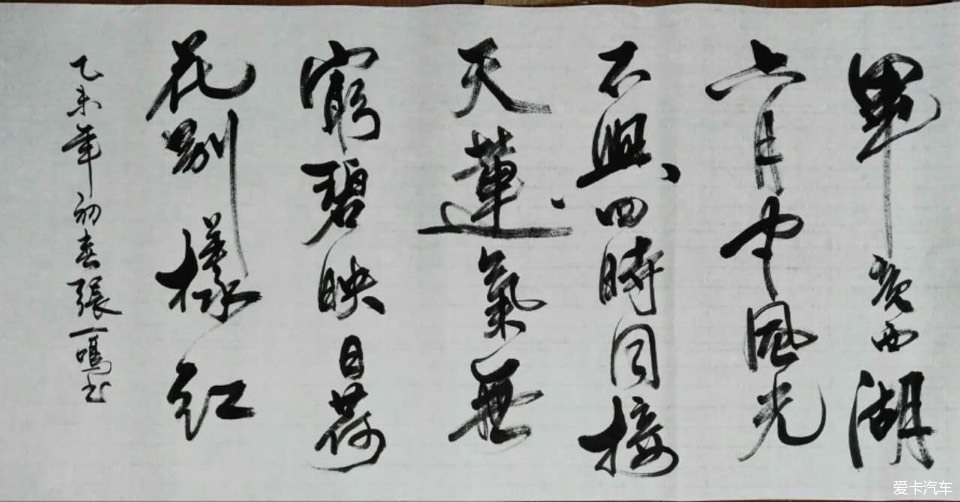 畢竟西湖
六月中風光
不與四時同接
天蓮氣無
窮碧映日荷
花別樣紅
乙未年初春張一鳴书
爱卡汽车